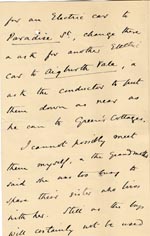 for an Electric car to
Paradise St, change there
& ask for another Electric
car to Aigburth Vale, &
ask the conductor to put
them down as near as
he can to Green's Cottages.
I cannot possibly meet
them myself, & the Grandmother
said she was too busy to
spare their sister who lives
with her. Still as the boys
will certainly not be used